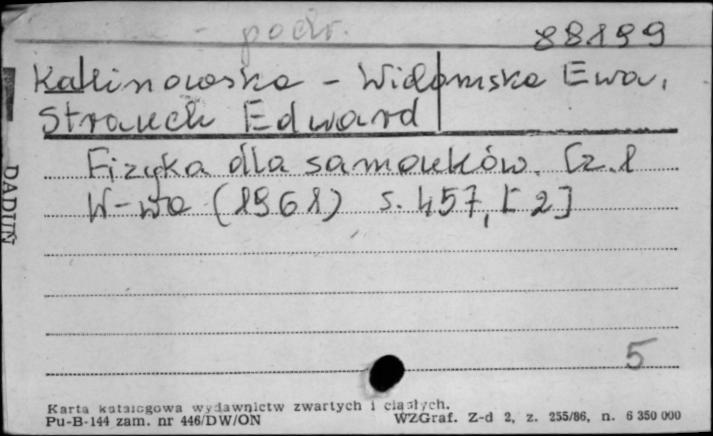 podr.
88199
Kalinowska - Widomska Ewa,
Strauch Edward
Fizyka dla samouków. Cz. 1
W-wa (1961) s. 457, [2]
DADUN
5
Karta katalogowa wydawnictw zwartych i ciągłych.
Pu-B-144 zam. nr 446/DW/ON WZGraf. Z-d 2, z. 255/86, n. 6 350 000